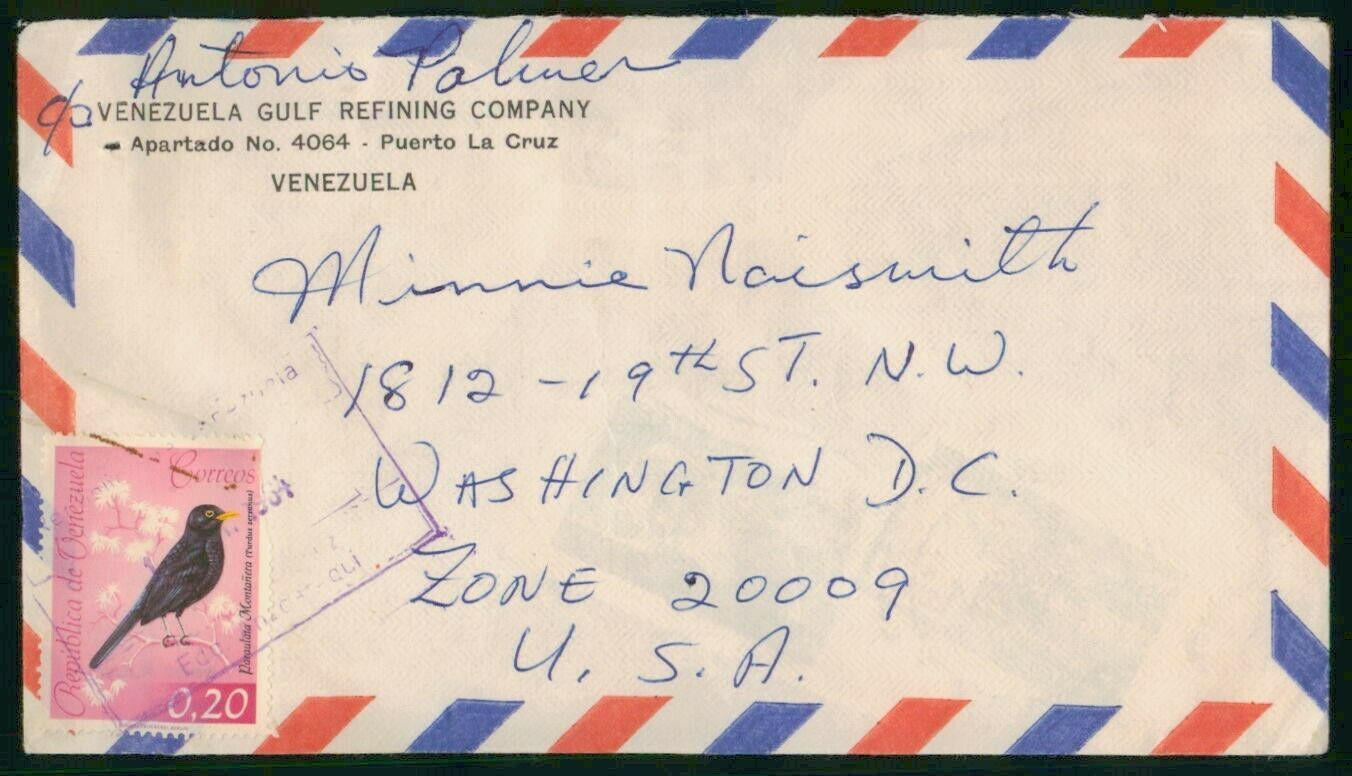 Antonio Palmer
c/o VENEZUELA GULF REFINING COMPANY
- Apartado No. 4064 - Puerto La Cruz
VENEZUELA
Minnie Naismith
1812 - 19th ST. N.W.
WASHINGTON D.C.
ZONE 20009
U.S.A.
Correos
República de Venezuela
Paraulata Montañera (Turdus serranus)
0,20